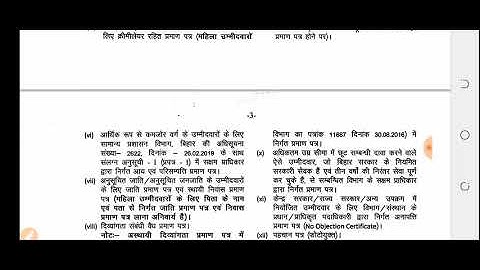 लिए क्रीमीलेयर रहित प्रमाण पत्र (महिला उम्मीदवारों
प्रमाण पत्र होने पर)।
-3-
(vi) आर्थिक रूप से कमजोर वर्ग के उम्मीदवारों के लिए
सामान्य प्रशासन विभाग, बिहार की अधिसूचना
संख्या– 2622, दिनांक – 26.02.2019 के साथ
संलग्न अनुसूची - I (प्रपत्र - I) में सक्षम प्राधिकार
द्वारा निर्गत आय एवं परिसम्पत्ति प्रमाण पत्र।
(vii) अनुसूचित जाति/अनुसूचित जनजाति के उम्मीदवारों
के लिए जाति प्रमाण पत्र एवं स्थायी निवास प्रमाण
पत्र (महिला उम्मीदवारों के लिए पिता के नाम
एवं पता से निर्गत जाति प्रमाण पत्र एवं निवास
प्रमाण पत्र लाना अनिवार्य है)।
(viii) दिव्यांगता संबंधी वैध प्रमाण पत्र।
नोटः– अस्थायी दिव्यांगता प्रमाण पत्र में
विभाग का पत्रांक 11687 दिनांक 30.08.2016) में
निर्गत प्रमाण पत्र।
(x) अधिकतम उम्र सीमा में छूट सम्बन्धी दावा करने वाले
ऐसे उम्मीदवार, जो बिहार सरकार के नियमित
सरकारी सेवक हैं एवं तीन वर्षों की निरंतर सेवा पूर्ण
कर चुके हैं, से सम्बन्धित विभाग के सक्षम प्राधिकार
द्वारा निर्गत प्रमाण पत्र।
(xi) केन्द्र सरकार/राज्य सरकार/अन्य उपक्रम में
नियोजित उम्मीदवार के लिए विभाग/संस्थान के
प्रधान/प्राधिकृत पदाधिकारी द्वारा निर्गत अनापत्ति
प्रमाण पत्र (No Objection Certificate)।
(xii) पहचान पत्र (फोटोयुक्त)।